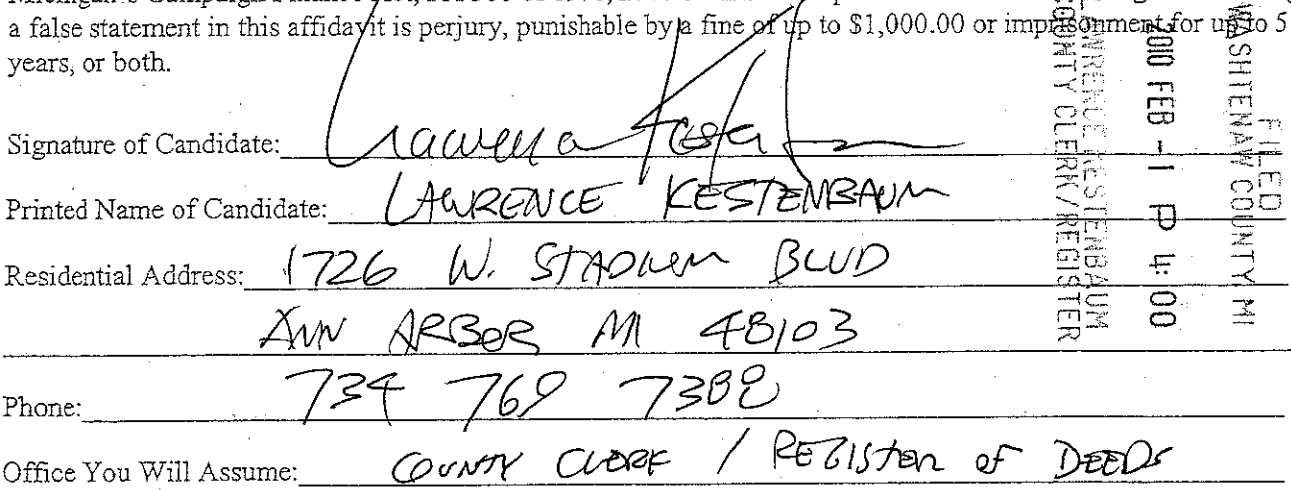 a false statement in this affidavit is perjury, punishable by a fine of up to $1,000.00 or imprisonment for up to 5
years, or both.
Signature of Candidate:
Printed Name of Candidate: LAWRENCE KESTENBAUM
Residential Address: 1726 W. STADIUM BLVD
ANN ARBOR MI 48103
Phone: 734 769 7388
Office You Will Assume: COUNTY CLERK / REGISTER OF DEEDS
FILED
WASHTENAW COUNTY MI
2010 FEB -1 P 4: 00
LAWRENCE KESTENBAUM
COUNTY CLERK/REGISTER